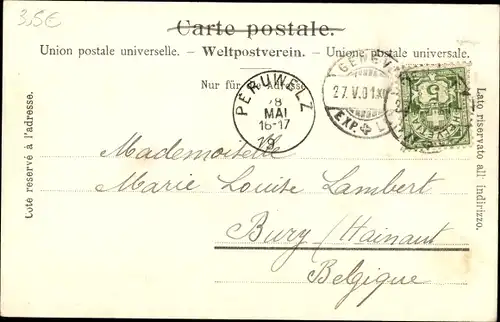 3,5€
Carte postale.
Union postale universelle. - Weltpostverein. - Unione postale universale.
Nur für die Adresse.
Côté réservé à l'adresse.
PERUWELZ
28
MAI
16-17
GENÈVE
27.V.01.XI
EXP.
5
HELVETIA
Mademoiselle
Marie Louise Lambert
Bury / Hainaut
Belgique
Lato riservato all' indirizzo.